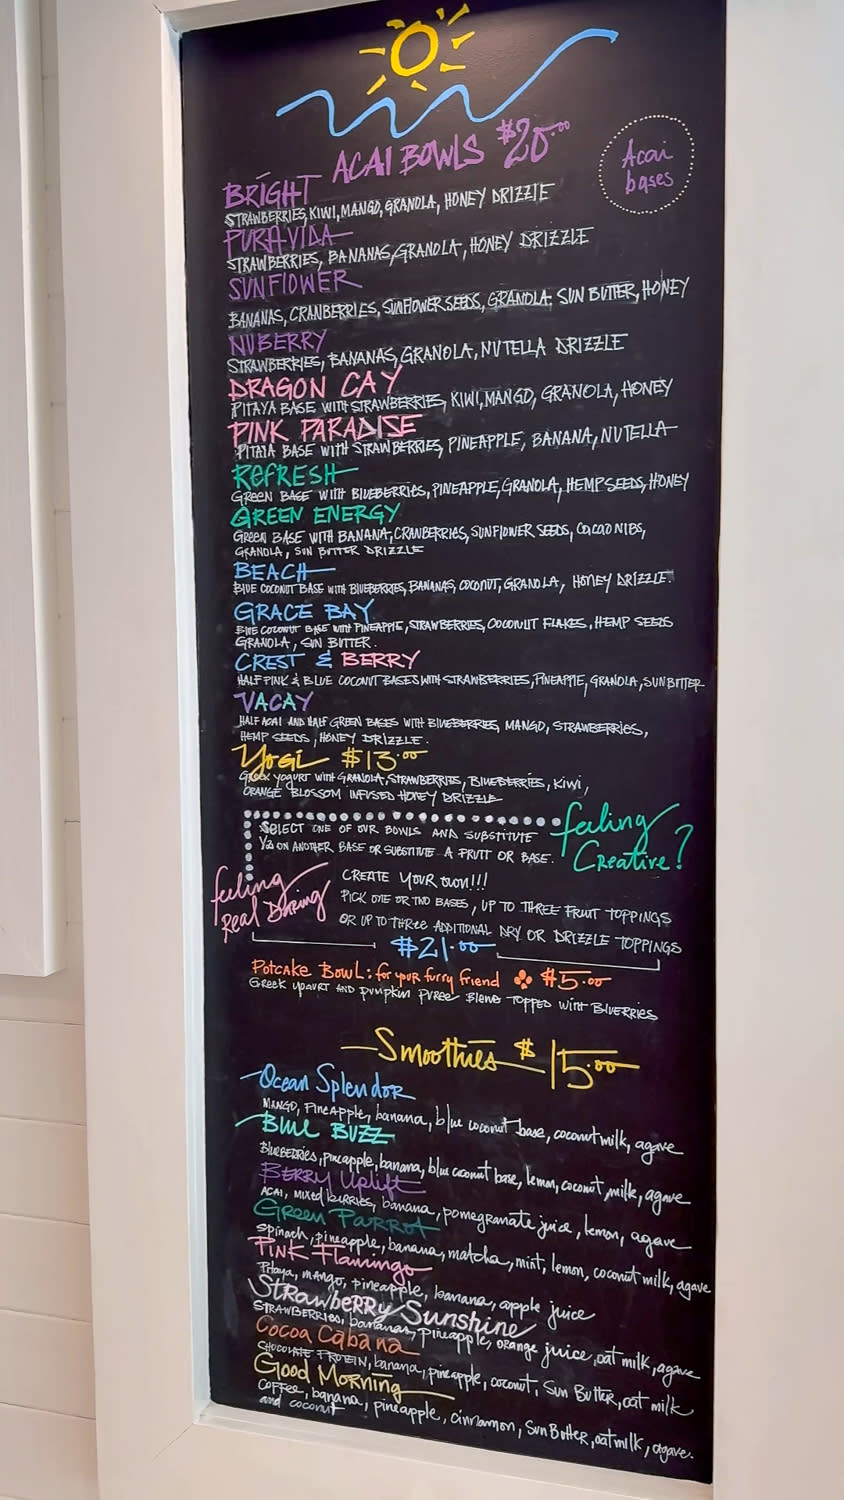 ACAI BOWLS $20.00
Acai
bases
BRIGHT
STRAWBERRIES, KIWI, MANGO, GRANOLA, HONEY DRIZZLE
PURA VIDA
STRAWBERRIES, BANANAS, GRANOLA, HONEY DRIZZLE
SUNFLOWER
BANANAS, CRANBERRIES, SUNFLOWER SEEDS, GRANOLA. SUN BUTTER, HONEY
NUBERRY
STRAWBERRIES, BANANAS, GRANOLA, NUTELLA DRIZZLE
DRAGON CAY
PITAYA BASE WITH STRAWBERRIES, KIWI, MANGO, GRANOLA, HONEY
PINK PARADISE
PITAYA BASE WITH STRAWBERRIES, PINEAPPLE, BANANA, NUTELLA
REFRESH
GREEN BASE WITH BLUEBERRIES, PINEAPPLE, GRANOLA, HEMP SEEDS, HONEY
GREEN ENERGY
GREEN BASE WITH BANANA, CRANBERRIES, SUNFLOWER SEEDS, CACAO NIBS,
GRANOLA, SUN BUTTER DRIZZLE
BEACH
BLUE COCONUT BASE WITH BLUEBERRIES, BANANAS, COCONUT, GRANOLA, HONEY DRIZZLE.
GRACE BAY
BLUE COCONUT BASE WITH PINEAPPLE, STRAWBERRIES, COCONUT FLAKES, HEMP SEEDS
GRANOLA, SUN BUTTER.
CREST & BERRY
HALF PINK & BLUE COCONUT BASES WITH STRAWBERRIES, PINEAPPLE, GRANOLA, SUN BUTTER
VACAY
HALF ACAI AND HALF GREEN BASES WITH BLUEBERRIES, MANGO, STRAWBERRIES,
HEMP SEEDS, HONEY DRIZZLE.
YOGI $13.00
GREEK YOGURT WITH GRANOLA, STRAWBERRIES, BLUEBERRIES, KIWI,
ORANGE BLOSSOM INFUSED HONEY DRIZZLE
feeling
Creative?
SELECT ONE OF OUR BOWLS AND SUBSTITUTE
1/2 ON ANOTHER BASE OR SUBSTITUTE A FRUIT OR BASE.
feeling
Real Daring
CREATE YOUR OWN!!!
PICK ONE OR TWO BASES, UP TO THREE FRUIT TOPPINGS
OR UP TO THREE ADDITIONAL DRY OR DRIZZLE TOPPINGS
$21.00
POTCAKE BOWL: for your furry friend $5.00
GREEK YOGURT AND PUMPKIN PUREE BLEND TOPPED WITH BLUERRIES
Smoothies $15.00
Ocean Splendor
MANGO, PINEAPPLE, banana, blue coconut base, coconut milk, agave
BLUE BUZZ
BLUEBERRIES, pineapple, banana, blue coconut base, lemon, coconut milk, agave
BERRY Uplift
ACAI, MIXED BERRIES, banana, pomegranate juice, lemon, agave
Green Parrot
Spinach, pineapple, banana, matcha, mint, lemon, coconut milk, agave
PINK Flamingo
Pitaya, mango, pineapple, banana, apple juice
StrawbeRRY Sunshine
STRAWBERRIES, bananas, pineapple, orange juice, oat milk, agave
Cocoa Cabana
CHOCOLATE PROTEIN, banana, pineapple, coconut, Sun Butter, oat milk
Good Morning
Coffee, banana, pineapple, cinnamon, Sun Butter, oat milk, agave.
and coconut